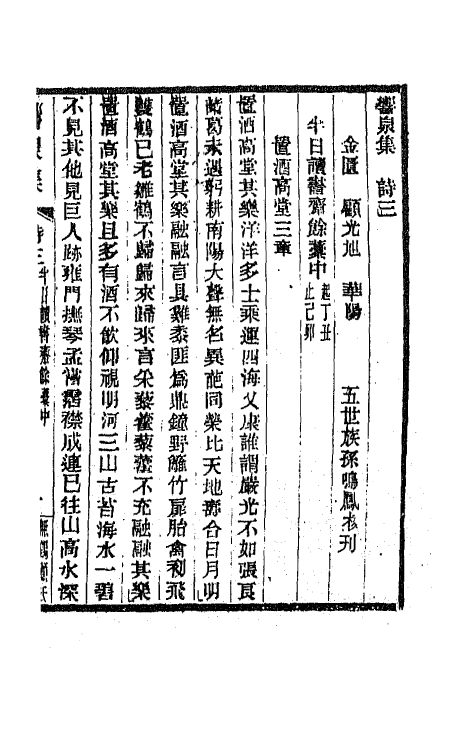 響泉集 詩三
金匱 顧光旭 華陽 五世族孫鳴鳳丞刊
半日讀書齋餘藁中 起丁丑
止己卯
置酒高堂三章
置酒高堂其樂洋洋多士乘運四海乂康誰謂嚴光不如張良
諸葛未遇躬耕南陽大聲無名異葩同榮比天地壽合日月明
置酒高堂其樂融融言具雞黍匪爲鼎鐘野籬竹扉胎禽初飛
雙鶴已老雛鶴不歸歸來歸來言采藜藿藜藿不充融融其樂
置酒高堂其樂且多有酒不飲仰視明河三山古苔海水一碧
不見其他見巨人跡雍門撫琴孟嘗霑襟成連已往山高水深
響泉集 詩三 半日讀書齋餘藁中